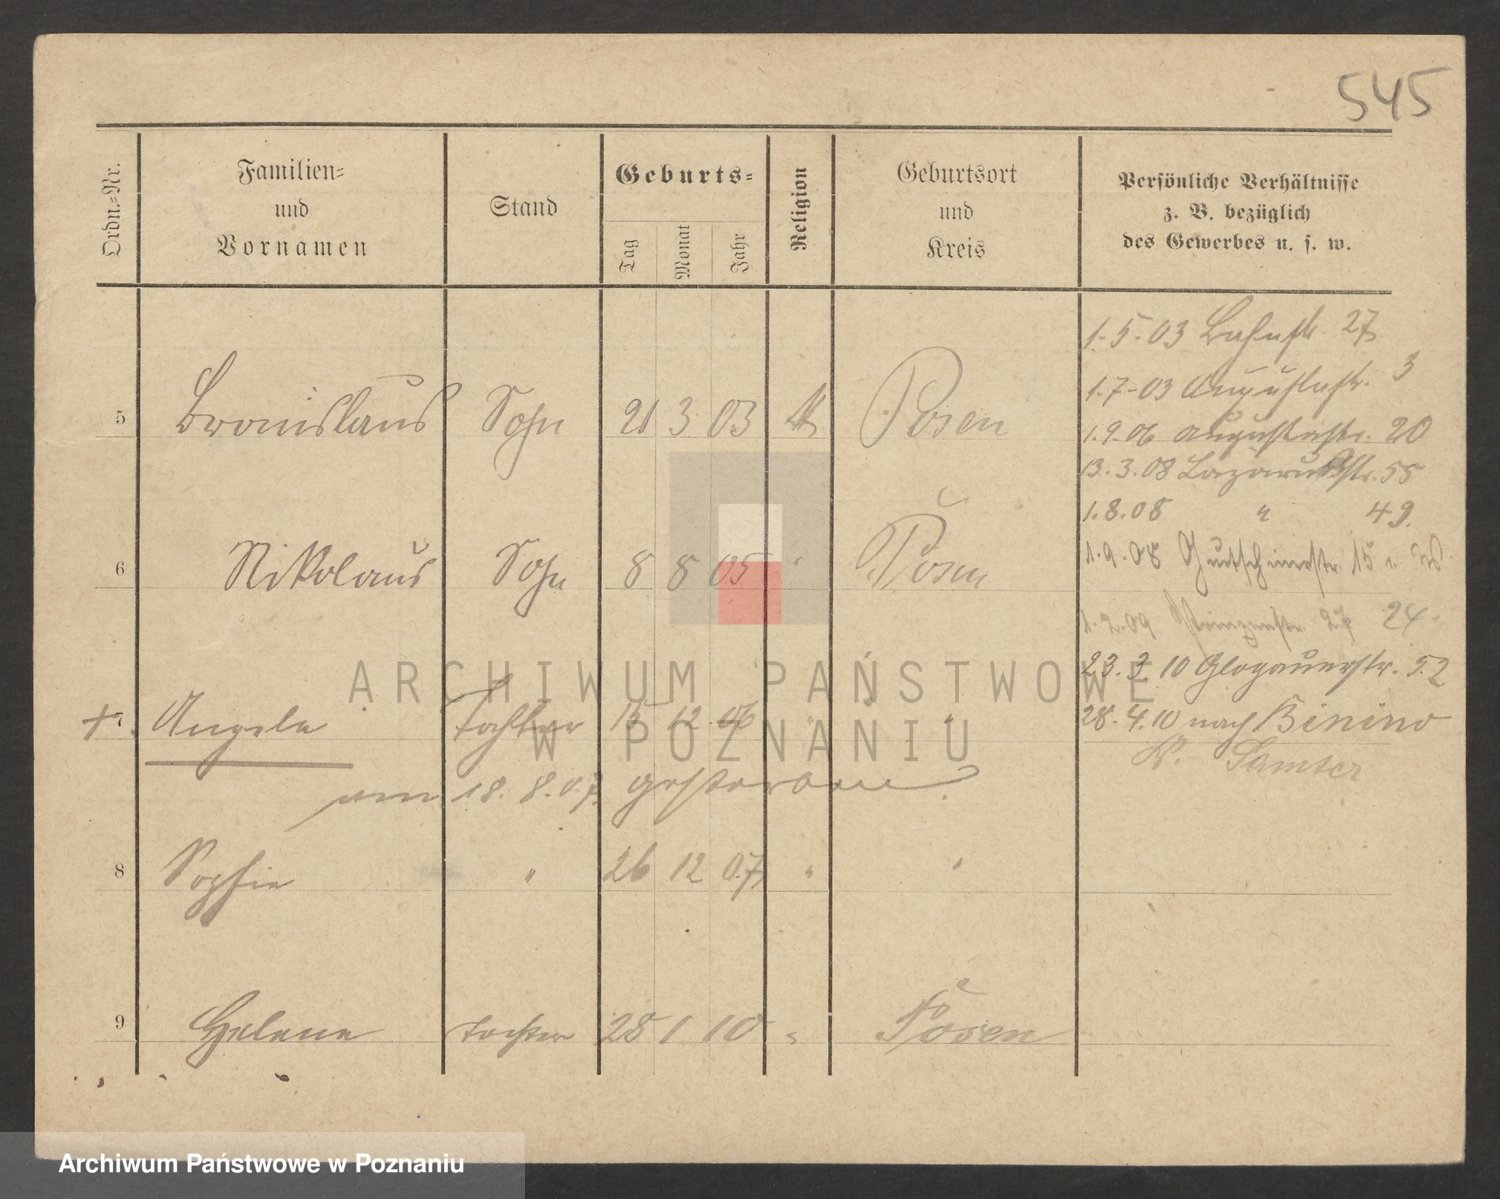 545
Ordn.-Nr.
Familien-
und
Vornamen
Stand
Geburts-
Tag
Monat
Jahr
Religion
Geburtsort
und
Kreis
Persönliche Verhältnisse
z. B. bezüglich
des Gewerbes u. s. w.
1.5.03 Bahnstr. 27
1.7.03 Augustastr. 3
5 Bronislaus Sohn 21 3 03 K Posen
1.9.06 Augustastr. 20
13.3.08 Lazarusstr. 55
1.8.08 " 49.
6 Nikolaus Sohn 8 8 05 " Posen
1.9.08 15
1.2.09 Prinzenstr. 27 24
23.3.10 Glogauerstr. 52
+ 7. Angela Tochter 15 12 06 " "
28.4.10 nach Binino
K. Samter
am 18.8.07 gestorben.
8 Sophie " 26 12 07 " "
9 Helene Tochter 28 1 10 " Posen
ARCHIWUM PAŃSTWOWE
W POZNANIU
Archiwum Państwowe w Poznaniu